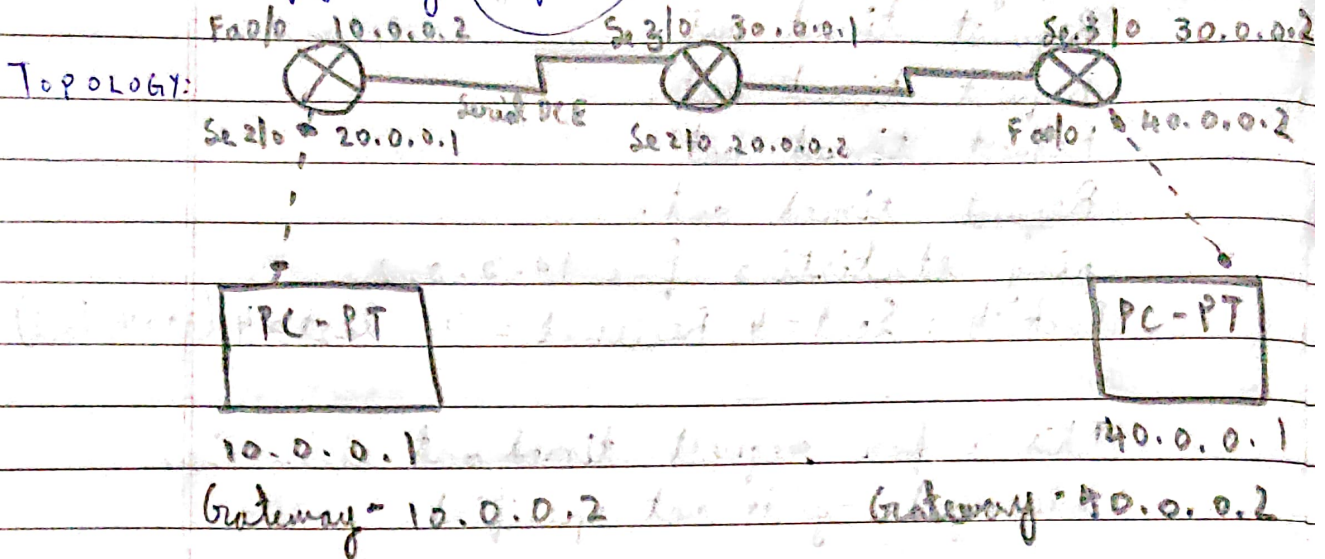 Fa0/0 10.0.0.2 Se 3/0 30.0.0.1 Se 3/0 30.0.0.2
TOPOLOGY:
Serial DCE
Se 2/0 20.0.0.1 Se 2/0 20.0.0.2 Fa0/0 40.0.0.2
PC-PT PC-PT
10.0.0.1 40.0.0.1
Gateway - 10.0.0.2 Gateway - 40.0.0.2